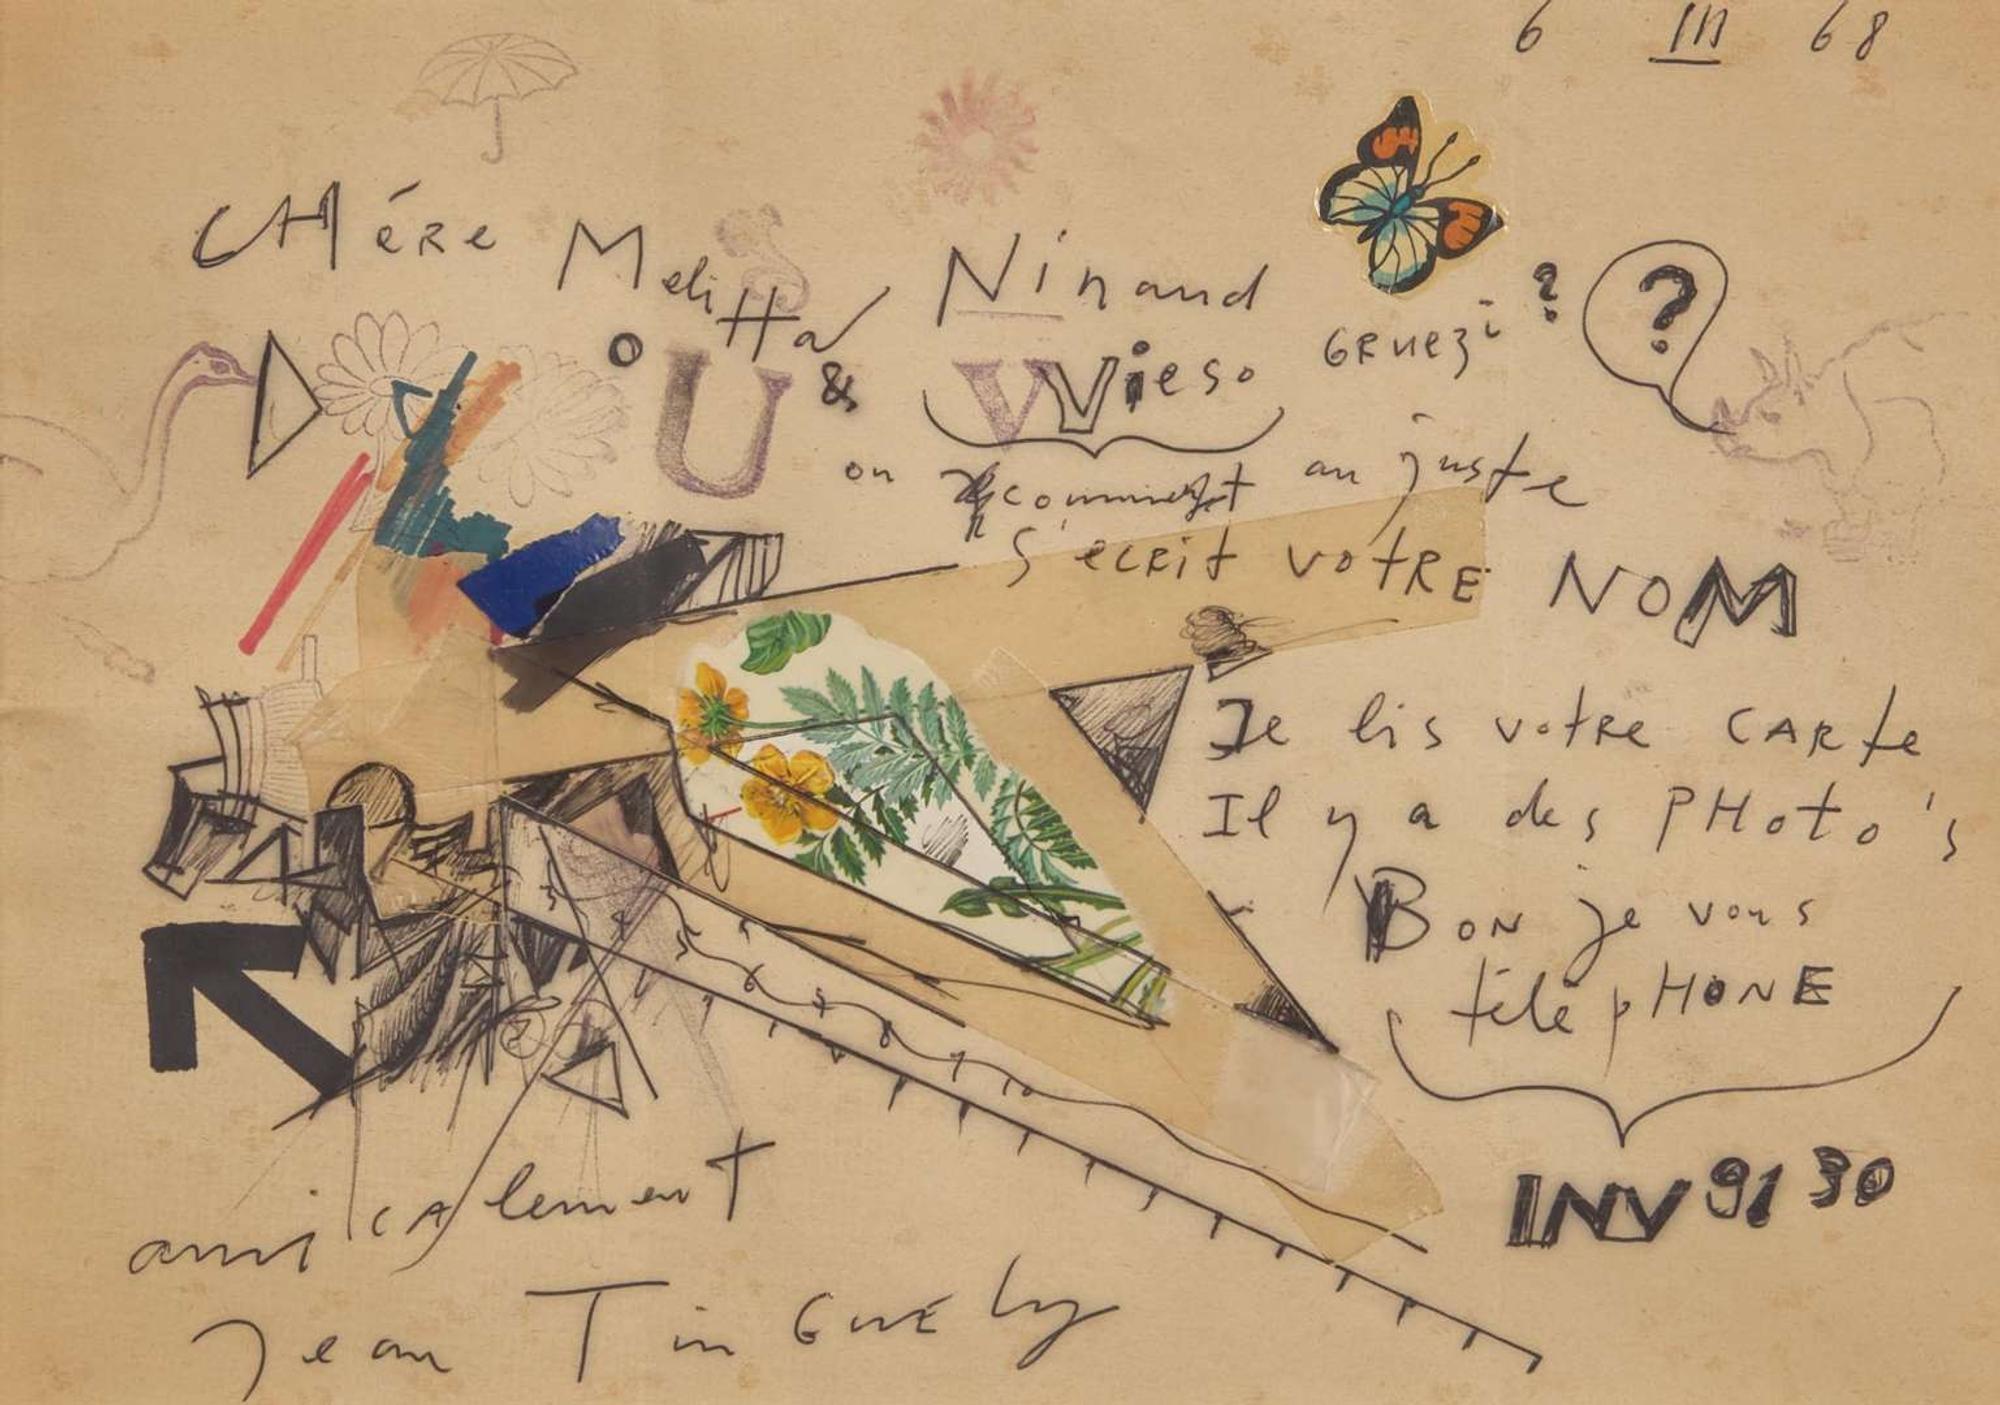 6 III 68
CHére Melitta Ninand
o U & V Vieso GRuezi ? ?
on comment au juste
s'ecrit votRE NOM
Je lis votRe CARte
Il y a des PHoto's
BoN je vous
télépHONE
INV 91 30
amicalement
Jean TinGuEly